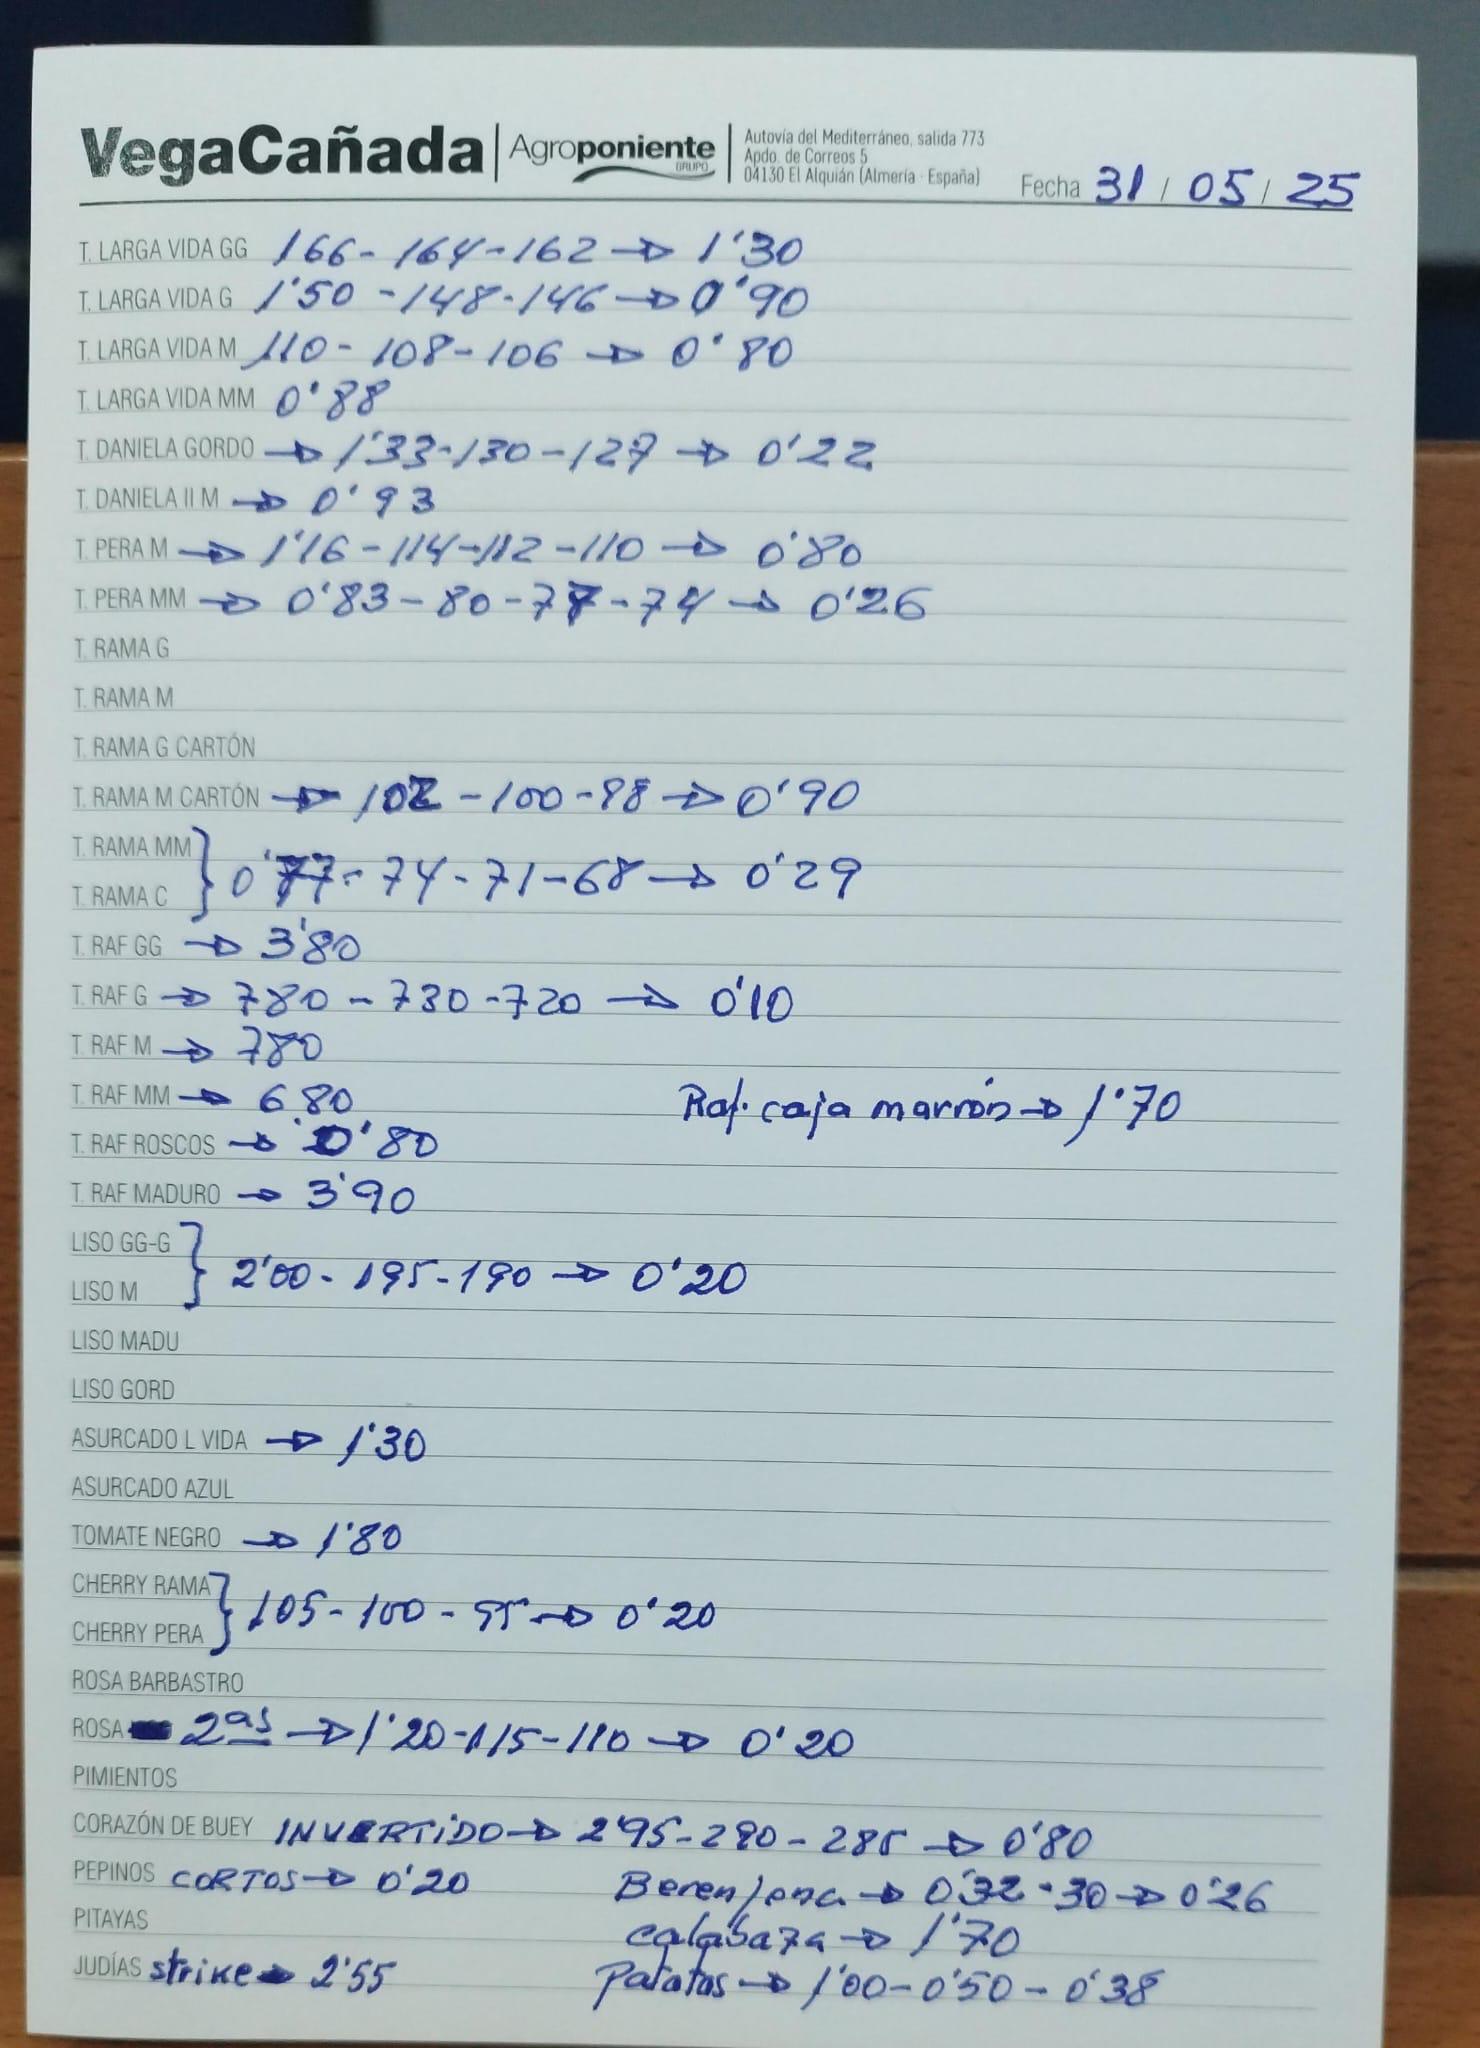 VegaCañada | Agroponiente GRUPO
Autovía del Mediterráneo, salida 773
Apdo. de Correos 5
04130 El Alquián (Almería - España)
Fecha 31 / 05 / 25
T. LARGA VIDA GG 166 - 164 - 162 → 1'30
T. LARGA VIDA G 1'50 - 148 - 146 → 0'90
T. LARGA VIDA M 110 - 108 - 106 → 0'80
T. LARGA VIDA MM 0'88
T. DANIELA GORDO → 1'33 - 130 - 127 → 0'22
T. DANIELA II M → 0'93
T. PERA M → 1'16 - 114 - 112 - 110 → 0'80
T. PERA MM → 0'83 - 80 - 77 - 74 → 0'26
T. RAMA G
T. RAMA M
T. RAMA G CARTÓN
T. RAMA M CARTÓN → 102 - 100 - 98 → 0'90
T. RAMA MM
T. RAMA C } 0'77 - 74 - 71 - 68 → 0'29
T. RAF GG → 3'80
T. RAF G → 780 - 730 - 720 → 0'10
T. RAF M → 780
T. RAF MM → 6.80 Raf. caja marrón → 1'70
T. RAF ROSCOS → 0'80
T. RAF MADURO → 3'90
LISO GG-G
LISO M } 2'00 - 195 - 190 → 0'20
LISO MADU
LISO GORD
ASURCADO L VIDA → 1'30
ASURCADO AZUL
TOMATE NEGRO → 1'80
CHERRY RAMA
CHERRY PERA } 105 - 100 - 95 → 0'20
ROSA BARBASTRO
ROSA 2as → 1'20 - 115 - 110 → 0'20
PIMIENTOS
CORAZÓN DE BUEY INVERTIDO → 2'95 - 290 - 285 → 0'80
PEPINOS CORTOS → 0'20 Berenjena → 0'32 - 30 → 0'26
PITAYAS calabaza → 1'70
JUDÍAS strike → 2'55 Patatas → 1'00 - 0'50 - 0'38